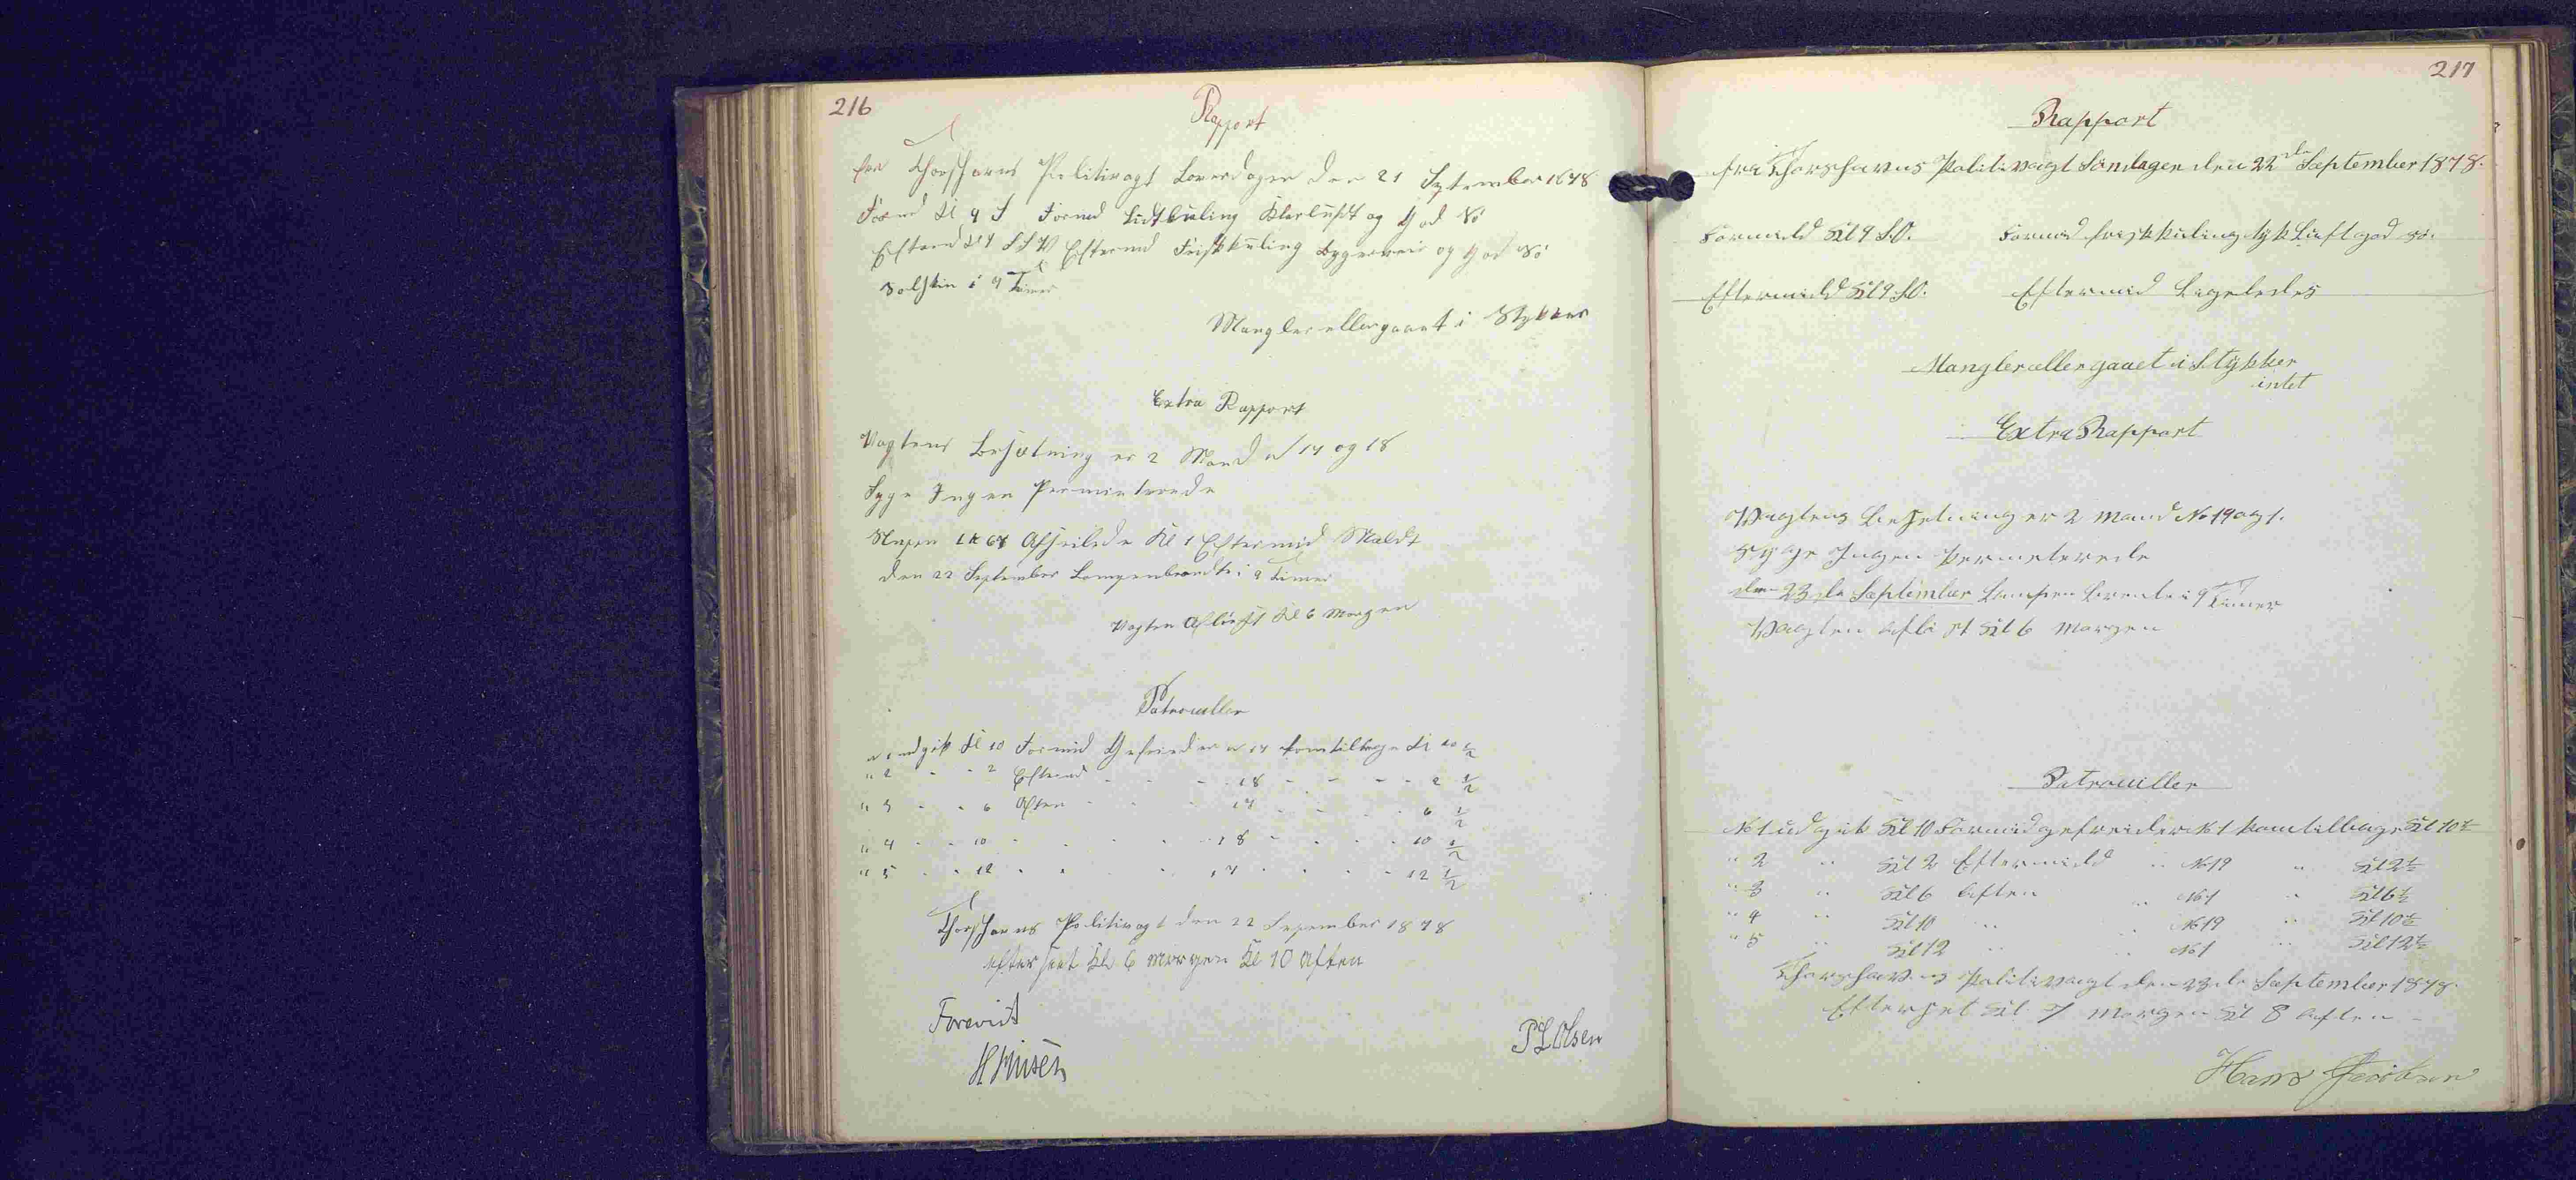 216
Rapport
fra Thorshavns Politivagt Loverdagen den 21 September 1878
Formd Kl 9 S Formd Lidtkuling Klarluft og God Sö
Eftermd Kl 9 SSV Eftermd Friskkuling Bygerveir og God Sö
Solskin i 9 Timer
Mangler ellergaaet i Stykker
Extra Rapport
Vagtens Besætning er 2 Mand N 17 og 18
Syge Ingen Permiterede
Afseilede Kl 1 Eftermid
den 22 September Lampenbrendte i 9 Timer
Vagten Aflöst Kl 6 Morgen
Patrouller
N 1 udgik Kl 10 Formid Gefreider N 17 komtilbage Kl 10 1/2
" 2 - - 2 Eftermd - - - 18 - - - 2 1/2
" 3 - - 6 Aften - - - 17 - - - 6 1/2
" 4 - - 10 - - - 18 - - - 10 1/2
" 5 - - 12 - - - 17 - - - 12 1/2
Thorshavns Politivagt den 22 September 1878
efterseet Kl 6 morgen Kl 10 Aften
Forevist
PLOlsen
217
Rapport
fra Thorshavns Politivagt Söndagen den 22de September 1878.
Formidd Kl 9 SO. Formid friskkuling tyk Luft god sö.
Eftermidd Kl 9 SO. Eftermid Ligeledes
Mangler eller gaaet i Stykker
intet
Extra Rapport
Vagtens Besetning er 2 Mand No 19 og 1.
Syge Ingen Permeterede
den 23de September Lampen brente i 9 Timer
Vagten aflöst Kl 6 Morgen
Patrouiller
No 1 udgik Kl 10 Formid gefreider N 1 kom tilbage Kl 10 1/2
" 2 " Kl 2 Eftermidd " No 19 " Kl 2 1/2
" 3 " Kl 6 Aften " No 1 " Kl 6 1/2
" 4 " Kl 10 " " No 19 " Kl 10 1/2
" 5 " Kl 12 " " No 1 " Kl 12 1/2
Thorshavns Politivagt den 23de September 1878.
Efterset Kl 7 Morgen Kl 8 Aften
Hans